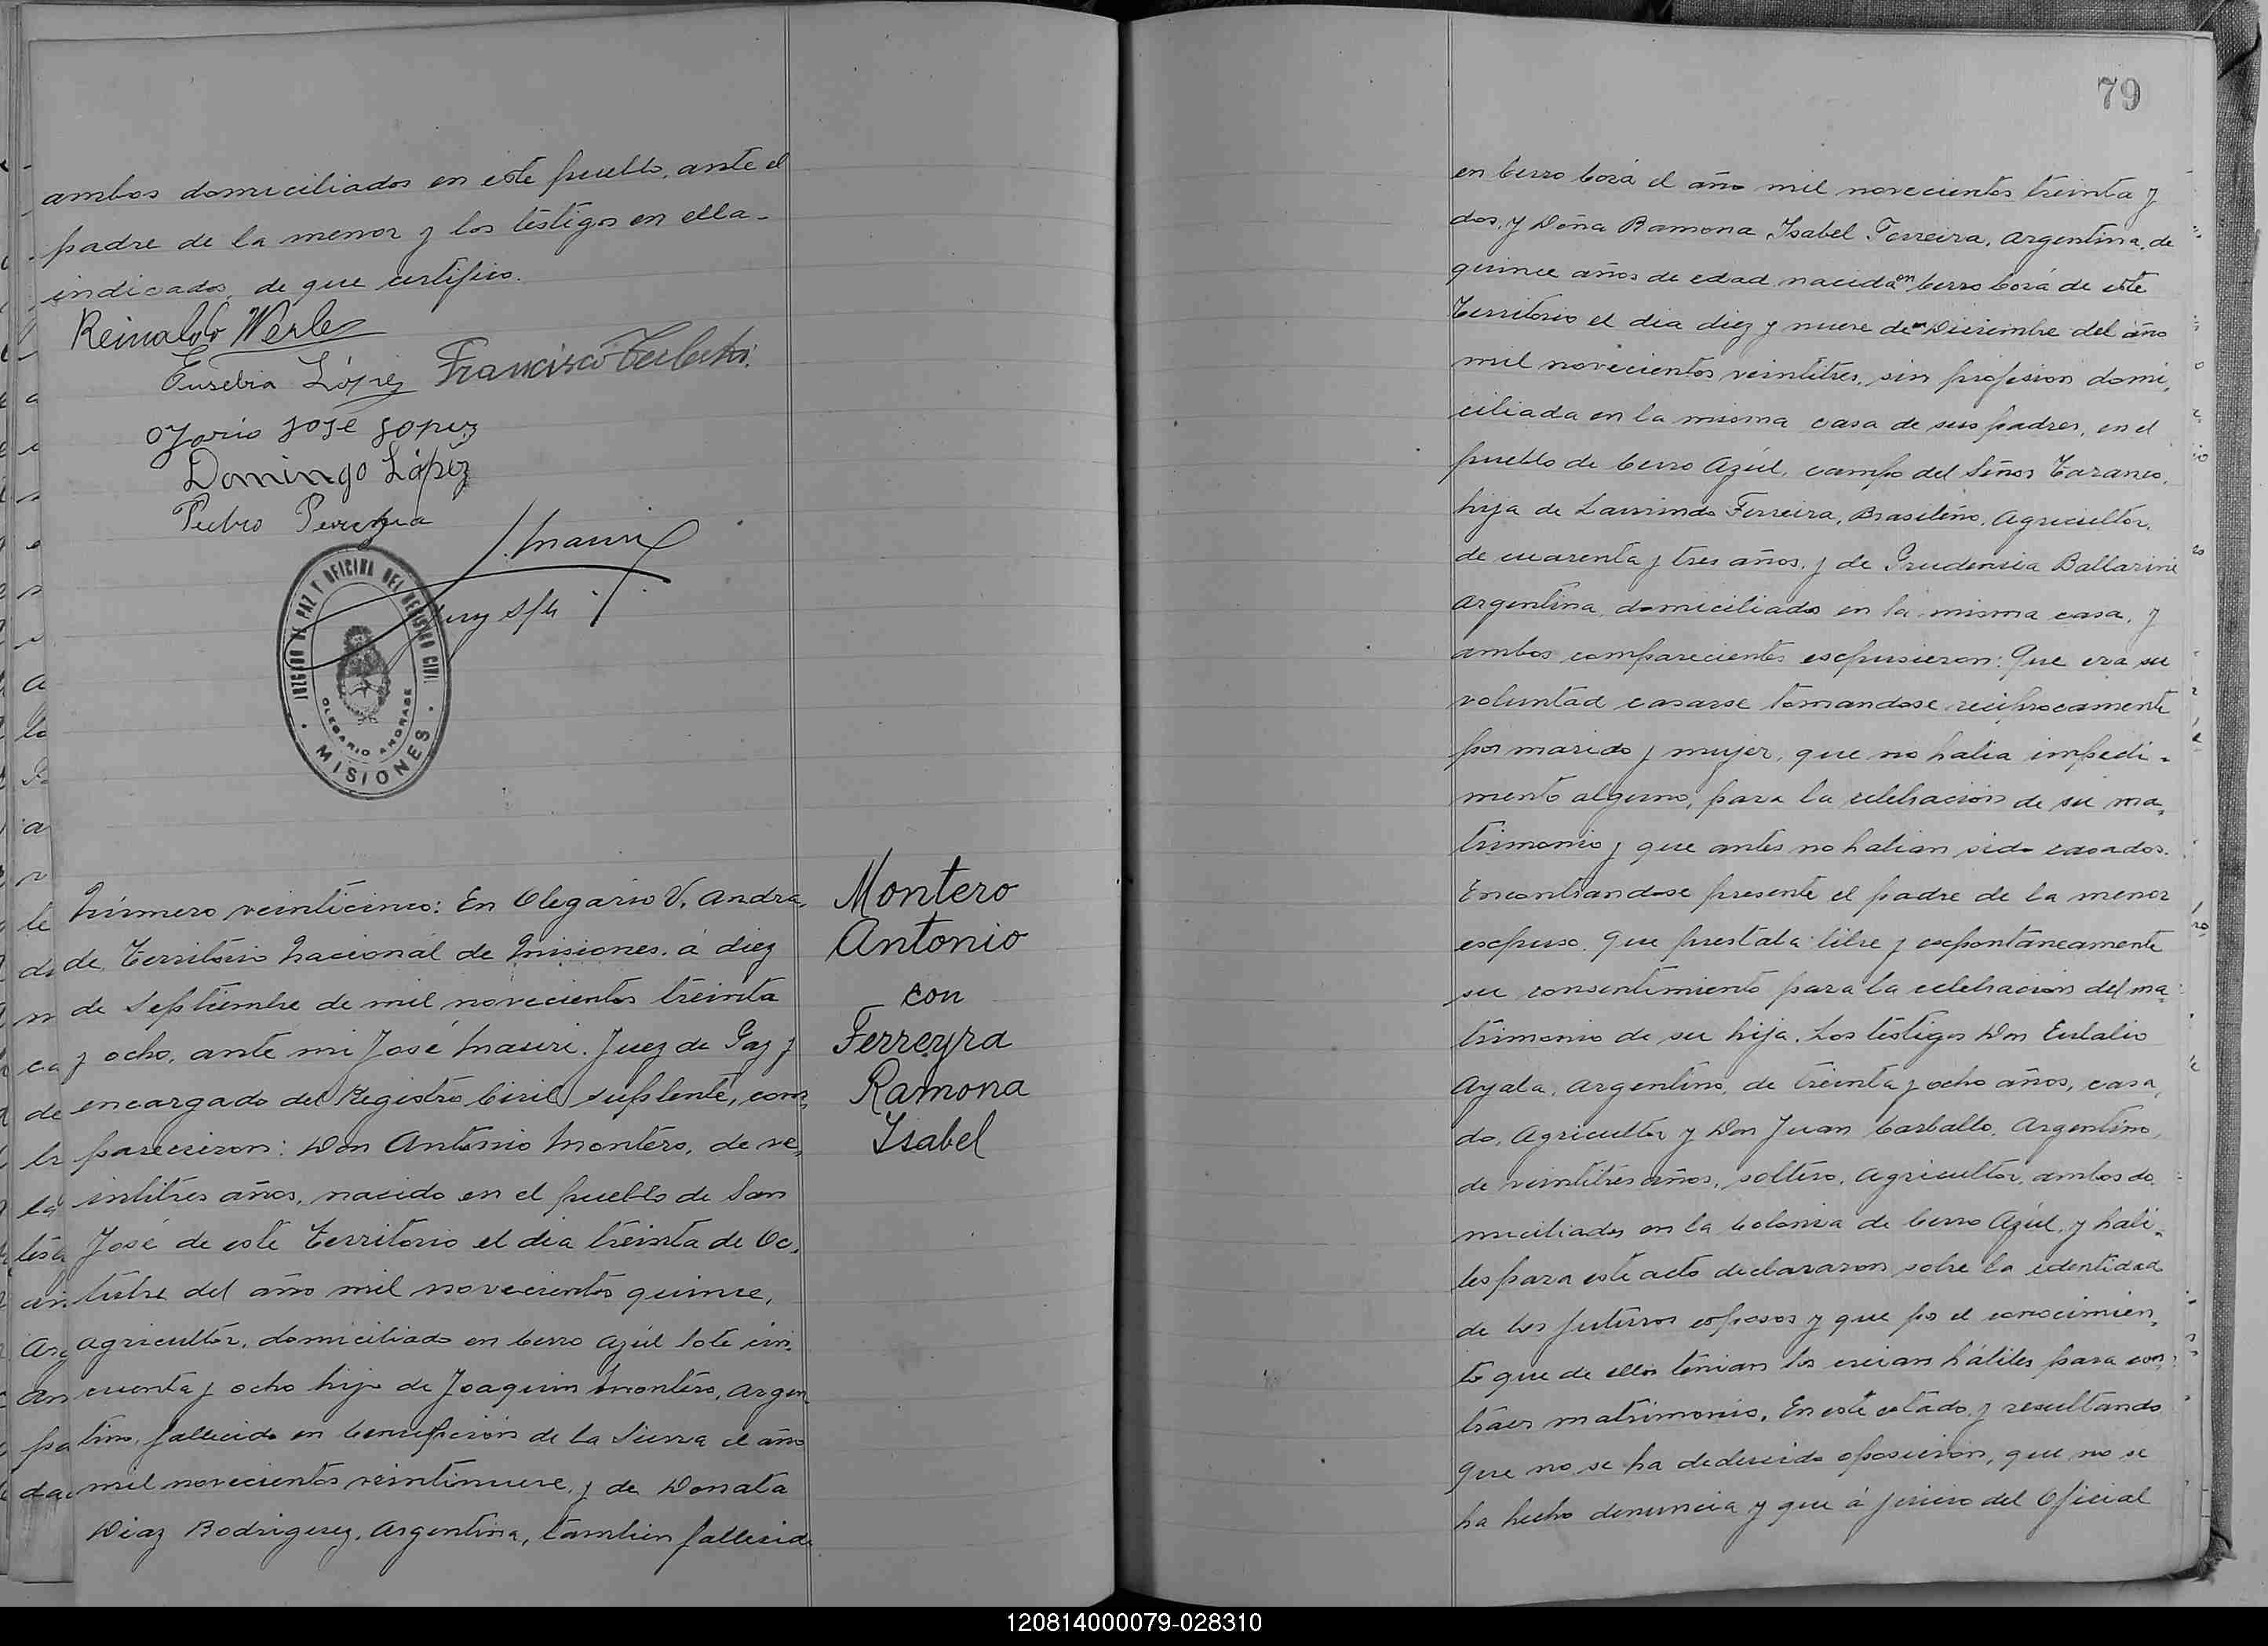 ambos domiciliados en este pueblo, ante el
padre de la menor y los testigos en ella-
indicados, de que certifico.
Reinaldo Werle
Eusebia López Francisco
Ozorio José Lopez
Domingo López
Pedro
J. Mauri
Juez Spte
JUZGADO DE PAZ Y OFICINA DEL REGISTRO CIVIL
OLEGARIO ANDRADE
MISIONES
Número veinticinco: En Olegario V. Andra,
de, Territorio Nacional de Misiones, á diez
de Septiembre de mil novecientos treinta
y ocho, ante mi José Mauri. Juez de Paz y
encargado del Registro Civil suplente, com,
parecieron: Don Antonio Montero, de ve,
intitres años, nacido en el pueblo de San
José de este Territorio el dia treinta de Oc,
tubre del año mil novecientos quince,
agricultor, domiciliado en Cerro Azúl lote cin,
cuenta y ocho hijo de Joaquin Montero, Argen,
tino, fallecido en Concepción de la Sierra el año
mil novecientos veintinueve, y de Donata
Diaz Rodriguez, Argentina, tambien fallecida
Montero
Antonio
con
Ferreyra
Ramona
Isabel
79
en Cerro Corá el año mil novecientos treinta y
dos, y Doña Ramona Isabel Ferreira, Argentina, de
quince años de edad nacida en Cerro Corá de este
Territorio el dia diez y nueve de Diciembre del año
mil novecientos veintitres, sin profesion domi,
ciliada en la misma casa de sus padres, en el
pueblo de Cerro Azúl, campo del Señor Taranco,
hija de Laurindo Ferreira, Brasileño, Agricultor,
de cuarenta y tres años, y de Prudencia Ballarini
Argentina, domiciliados en la misma casa, y
ambos comparecientes escpusieron: Que era su
voluntad casarse tomandose reciprocamente
por marido y mujer, que no habia impedi-
mento alguno, para la celebracion de su ma,
trimonio y que antes no habian sido casados.
Encontrandose presente el padre de la menor
escpuso. Que prestaba libre y escpontaneamente
su consentimiento para la celebracion del ma,
trimonio de su hija. Los testigos Don Eulalio
Ayala, Argentino, de treinta y ocho años, casa,
do, Agricultor y Don Juan Carballo, Argentino,
de veintitres años, soltero, Agricultor, ambos do
miciliados en la Colonia de Cerro Azúl, y habi-
les para este acto declararon sobre la identidad
de los futuros esposos y que por el conocimien,
to que de ellos tenian los creian hábiles para con,
traer matrimonio. En este estado, y resultando
que no se ha deducido oposición, que no se
ha hecho denuncia y que á juicio del Oficial
120814000079-028310